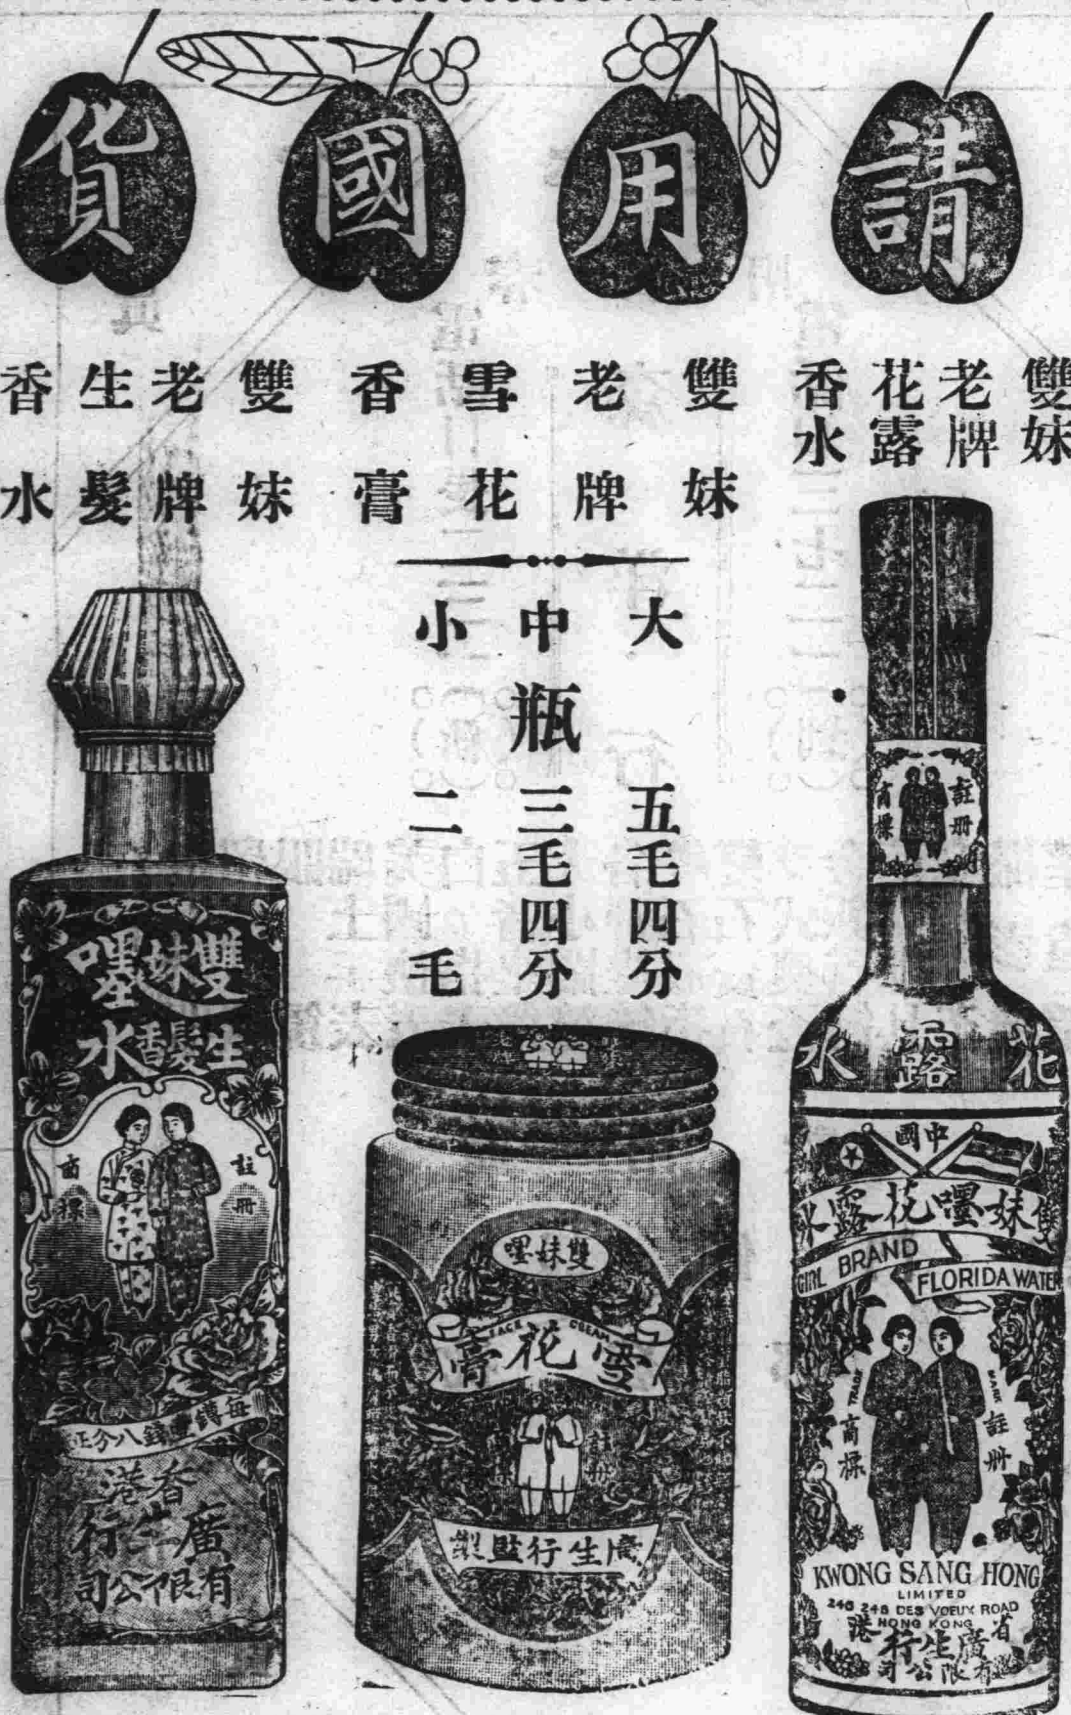 請用國貨
雙妹
老牌
花露
香水
雙妹
老牌
雪花
香膏
雙妹
老牌
生髮
香水
大 中 小
瓶
五毛四分
三毛四分
二毛
註冊
商標
花露水
中國
雙妹嚜花露水
GIRL BRAND
FLORIDA WATER
TRADE MARK
註冊
商標
KWONG SANG HONG
LIMITED
246 248 DES VOEUX ROAD
HONG KONG
省港
廣生行
有限公司
雙妹嚜
FACE CREAM
雪花膏
廣生行監製
雙妹嚜
生髮香水
註冊
商標
香港
廣生行
有限公司